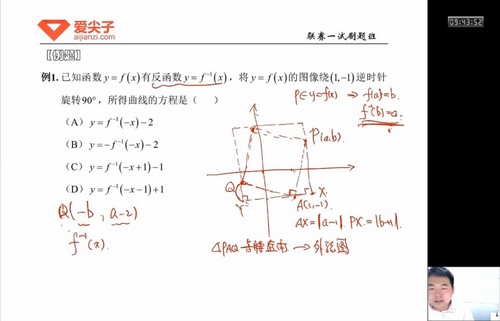 爱尖子
aijianzi.com
联赛一试刷题班
09:43:52
例1. 已知函数 y = f(x) 有反函数 y = f⁻¹(x)，将 y = f(x) 的图像绕(1,-1)逆时针
旋转90°，所得曲线的方程是（ ）
P∈y=f(x) → f(a)=b.
f⁻¹(b)=a.
(A) y = f⁻¹(-x) - 2
(B) y = -f⁻¹(-x) - 2
(C) y = f⁻¹(-x+1) - 1
(D) y = f⁻¹(-x-1) + 1
P(a,b)
Q
Y
X
A(1,-1)
Q(-b, a-2)
f⁻¹(x)
AX=|a-1| PX=|b+1|